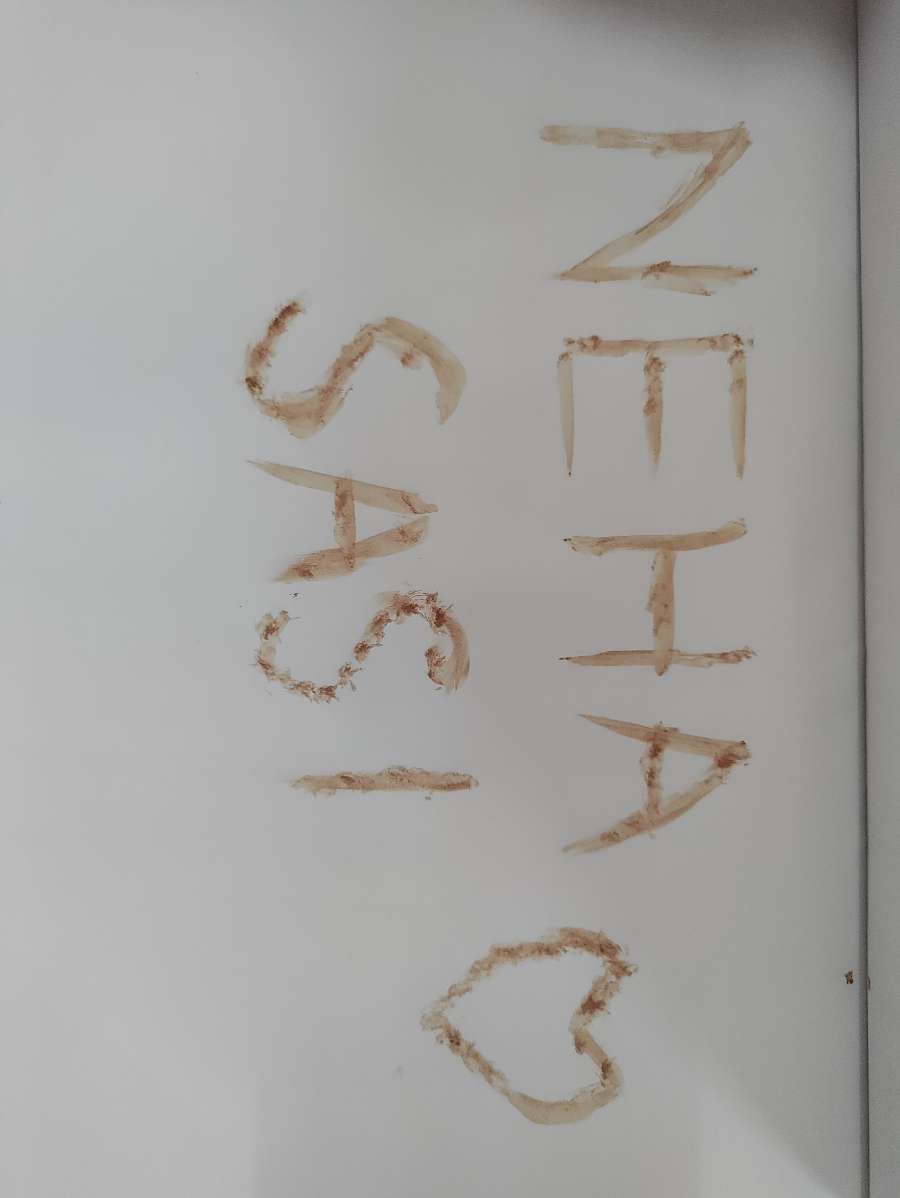 NEHA
SASI